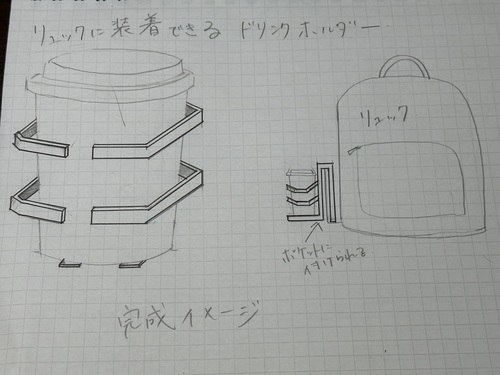 リュックに装着できる ドリンクホルダー
リュック
ポケットに
付けられる
完成イメージ